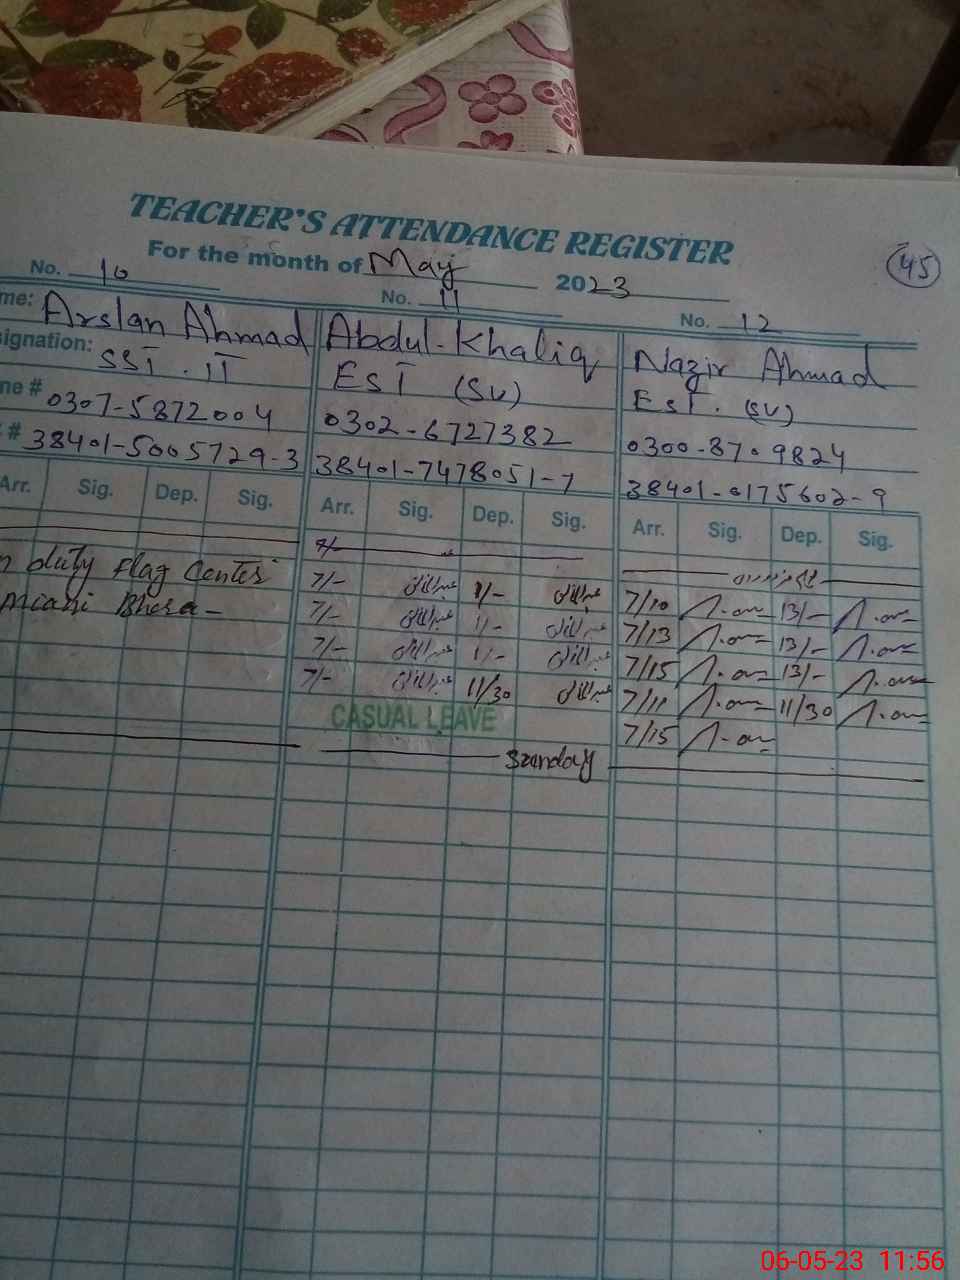 TEACHER'S ATTENDANCE REGISTER
For the month of May 2023
45
No. 10
No. 11
No. 12
me: Arslan Ahmad
Abdul-Khaliq
Nazir Ahmad
signation: SST.II
EST (SV)
EST. (SV)
ne # 0307-5872004
0302-6727382
0300-8709824
# 38401-5005729-3
38401-7478051-7
38401-0175602-9
Arr. Sig. Dep. Sig.
Arr. Sig. Dep. Sig.
Arr. Sig. Dep. Sig.
n duty flag Center
Miani Bhera-
7/-
7/- 1/-
7/- 1/-
7/- 1/-
7/- 11/30
CASUAL LEAVE
Sunday
7/10 13/-
7/13 13/-
7/15 13/-
7/11 11/30
7/15
06-05-23 11:56